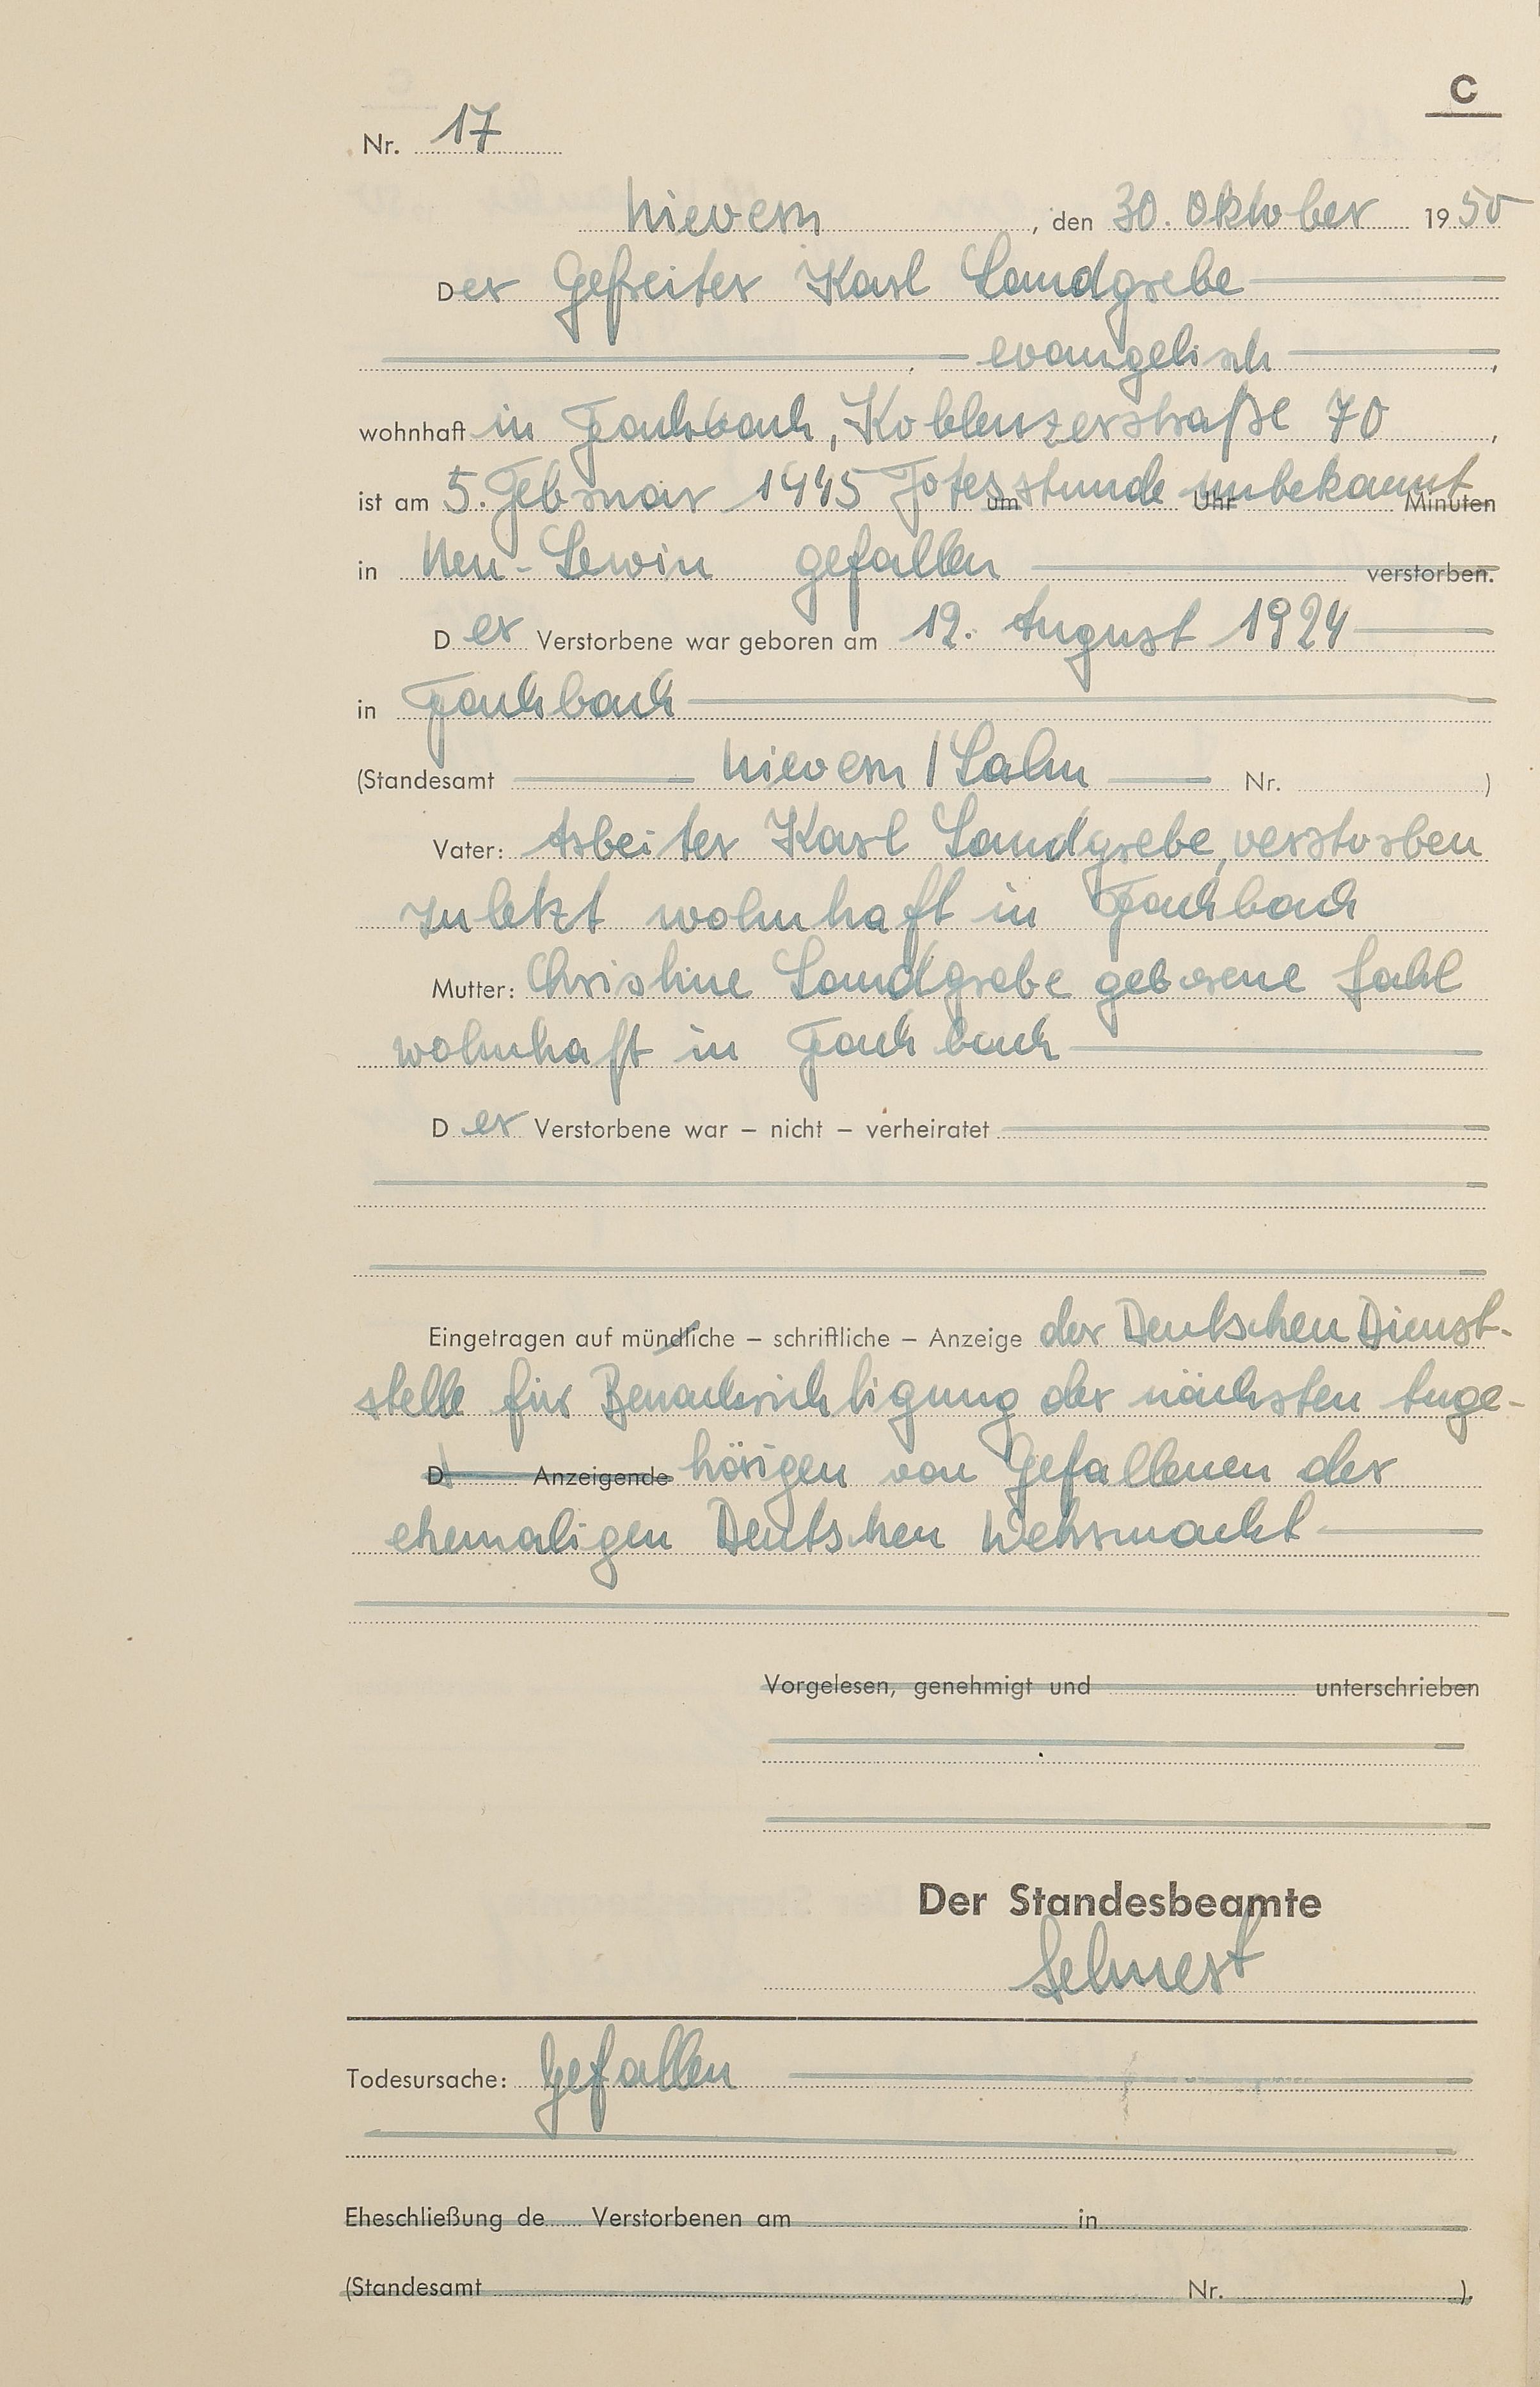 C
Nr. 17
Nievern, den 30. Oktober 1950
Der Gefreiter Karl Landgrebe
evangelisch,
wohnhaft in Fachbach, Koblenzerstraße 70,
ist am 5. Februar 1945 Totesstunde um Uhr unbekannt Minuten
in Neu-Lewin gefallen verstorben.
Der Verstorbene war geboren am 12. August 1924
in Fachbach
(Standesamt Nievern / Lahn Nr. )
Vater: Arbeiter Karl Landgrebe, verstorben
zuletzt wohnhaft in Fachbach
Mutter: Christine Landgrebe geborene
wohnhaft in Fachbach
Der Verstorbene war – nicht – verheiratet
Eingetragen auf mündliche – schriftliche – Anzeige der Deutschen Dienst-
stelle für Benachrichtigung der nächsten Ange-
D Anzeigende hörigen von Gefallenen der
ehemaligen Deutschen Wehrmacht
Vorgelesen, genehmigt und unterschrieben
Der Standesbeamte
Todesursache: Gefallen
Eheschließung de Verstorbenen am in
(Standesamt Nr. )